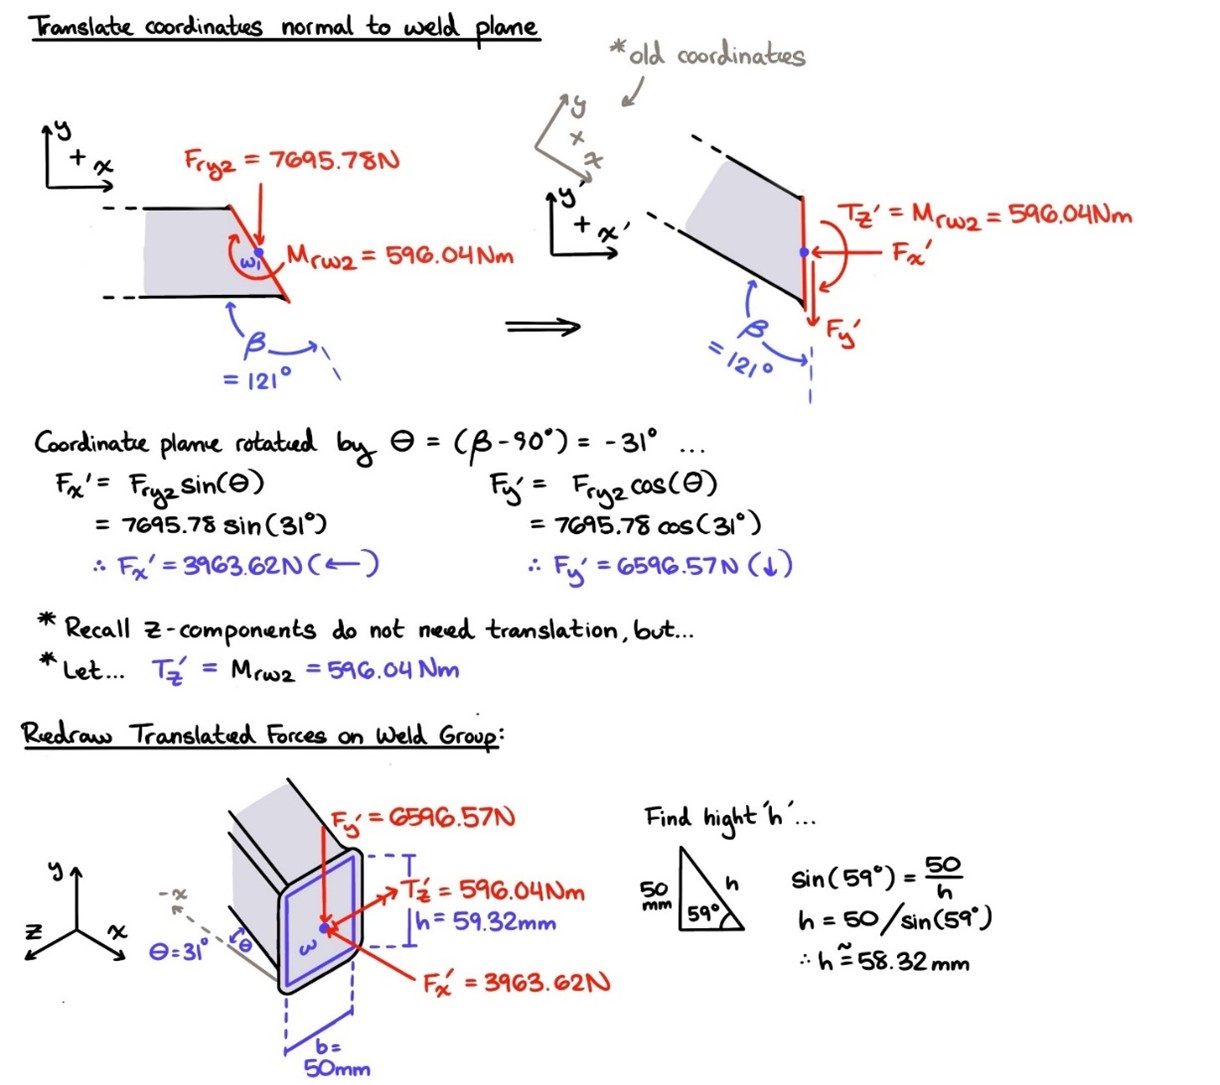 Translate coordinates normal to weld plane
*old coordinates
y
+ x
Fry2 = 7695.78N
Mrw2 = 596.04Nm
ω1
β
= 121°
y
+
x
y'
+ x'
Tz' = Mrw2 = 596.04Nm
Fx'
Fy'
β
= 121°
Coordinate plane rotated by θ = (β-90°) = -31° ...
Fx' = Fry2 sin(θ)
= 7695.78 sin(31°)
∴ Fx' = 3963.62N (←)
Fy' = Fry2 cos(θ)
= 7695.78 cos(31°)
∴ Fy' = 6596.57N (↓)
* Recall z-components do not need translation, but...
* Let... Tz' = Mrw2 = 596.04 Nm
Redraw Translated Forces on Weld Group:
y
z
x
-x
θ=31°
θ
ω
Fy' = 6596.57N
Tz' = 596.04Nm
h = 59.32mm
Fx' = 3963.62N
b=
50mm
Find hight 'h'...
50
mm
h
59°
sin(59°) = 50/h
h = 50/sin(59°)
∴ h ≅ 58.32mm